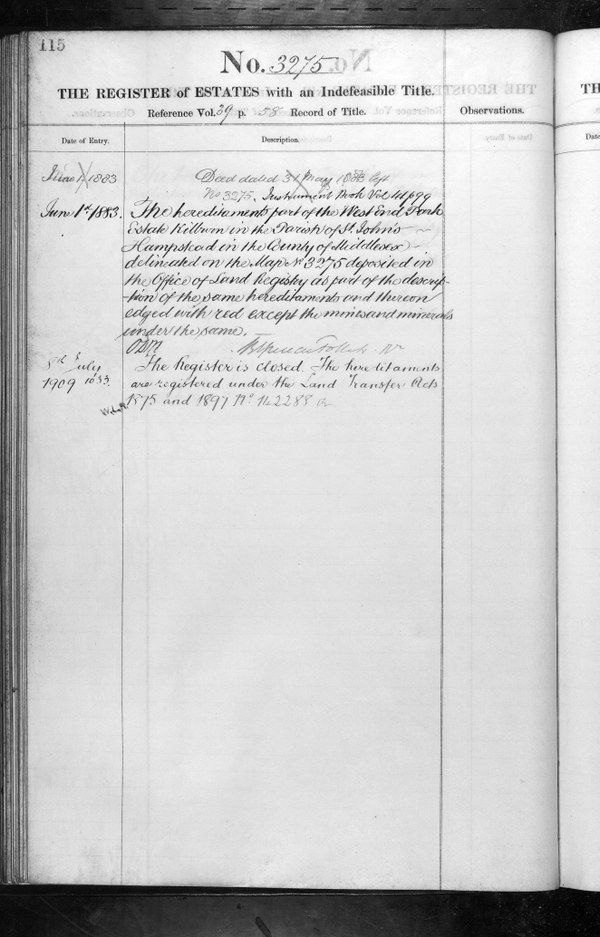 115
No. 3275
THE REGISTER of ESTATES with an Indefeasible Title.
Reference Vol. 39 p. 58 Record of Title.
Observations.
Date of Entry.
Description.
June 1 1883
Deed dated 31 May 1883
No 3275. Instrument Book Vol 41 p 99
June 1st 1883.
The hereditaments part of the West End Park
Estate Kilburn in the Parish of St. John's
Hampstead in the County of Middlesex
delineated on the Map No 3275 deposited in
the Office of Land Registry as part of the descrip-
-tion of the same hereditaments and thereon
edged with red except the mines and minerals
under the same.
8th July
1909
The Register is closed. The hereditaments
are registered under the Land Transfer Acts
1875 and 1897 No 142288
TH
Date